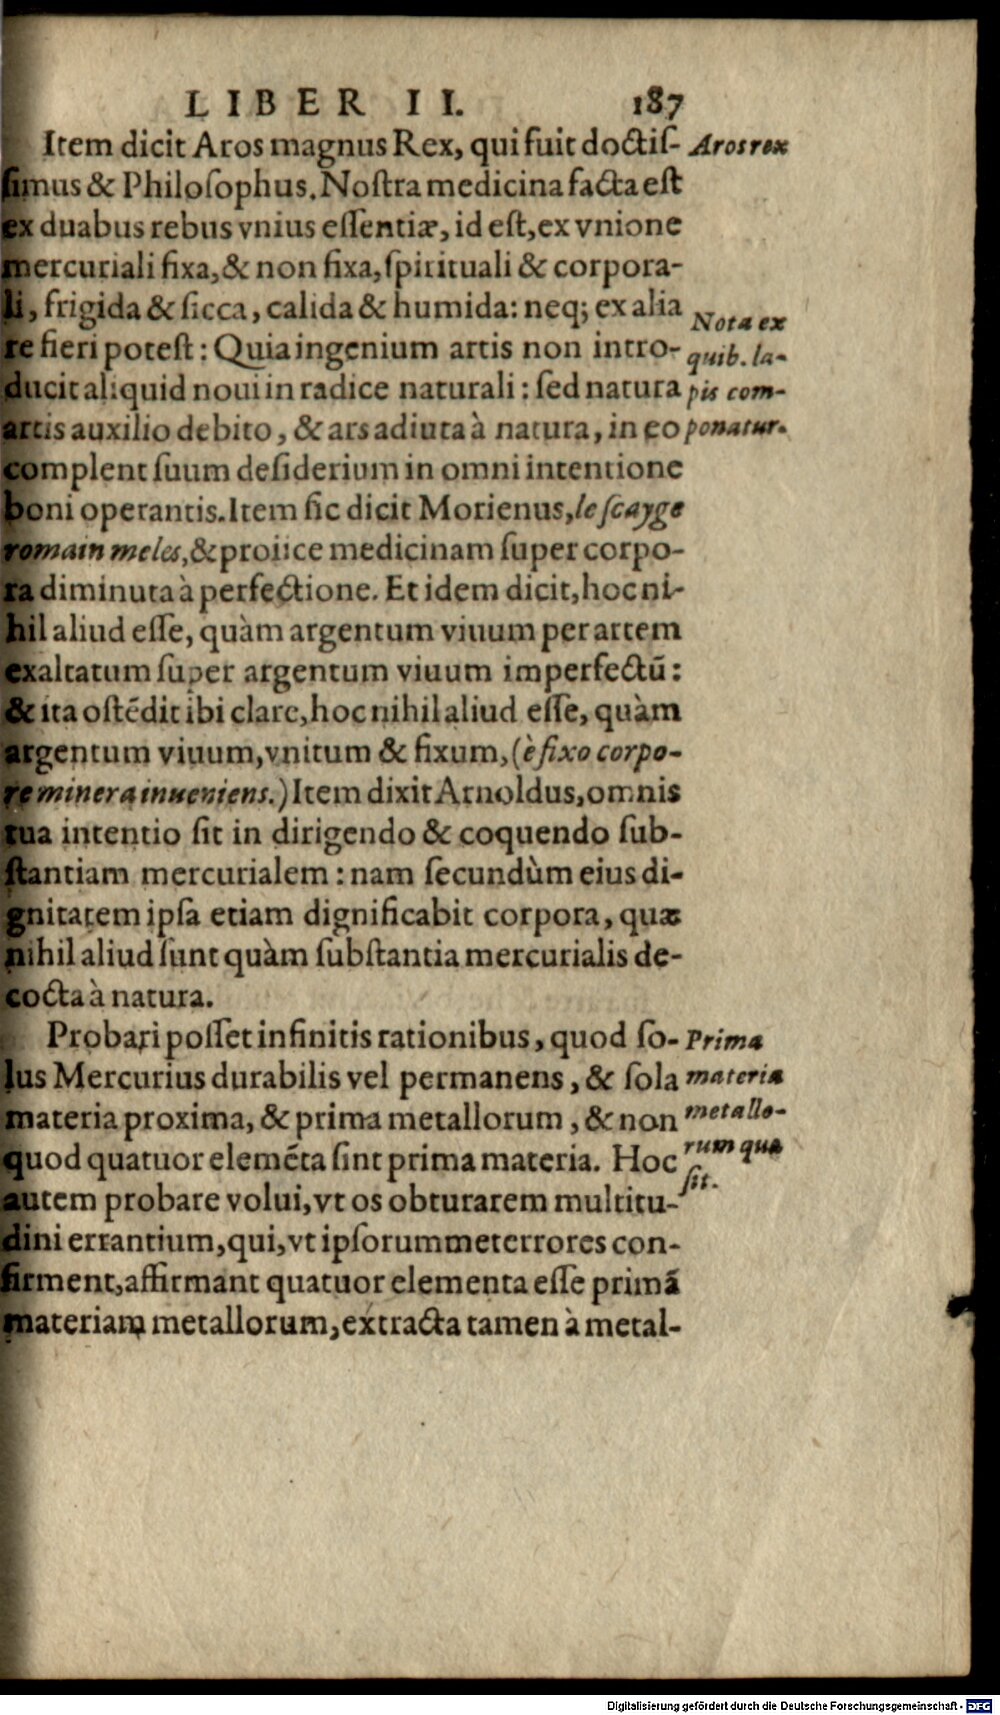 LIBER II. 187
Item dicit Aros magnus Rex, qui fuit doctiſ-
ſimus & Philoſophus. Noſtra medicina facta eſt
ex duabus rebus vnius eſſentiæ, id eſt, ex vnione
mercuriali fixa, & non fixa, ſpirituali & corpora-
li, frigida & ſicca, calida & humida: neq; ex alia
re fieri poteſt: Quia ingenium artis non intro-
ducit aliquid noui in radice naturali: ſed natura
artis auxilio debito, & ars adiuta à natura, in eo
complent ſuum deſiderium in omni intentione
boni operantis. Item ſic dicit Morienus, le ſcayge
romain meles, & proiice medicinam ſuper corpo-
ra diminuta à perfectione. Et idem dicit, hoc ni-
hil aliud eſſe, quàm argentum viuum per artem
exaltatum ſuper argentum viuum imperfectū:
& ita oſtēdit ibi clare, hoc nihil aliud eſſe, quàm
argentum viuum, vnitum & fixum, (è fixo corpo-
re minera inueniens.) Item dixit Arnoldus, omnis
tua intentio ſit in dirigendo & coquendo ſub-
ſtantiam mercurialem: nam ſecundùm eius di-
gnitatem ipſa etiam dignificabit corpora, quæ
nihil aliud ſunt quàm ſubſtantia mercurialis de-
cocta à natura.
Probari poſſet infinitis rationibus, quod ſo-
lus Mercurius durabilis vel permanens, & ſola
materia proxima, & prima metallorum, & non
quod quatuor elemēta ſint prima materia. Hoc
autem probare volui, vt os obturarem multitu-
dini errantium, qui, vt ipſorummet errores con-
firment, affirmant quatuor elementa eſſe primā
materiam metallorum, extracta tamen à metal-
Aros rex
Nota ex
quib. la-
pis com-
ponatur.
Prima
materia
metallo-
rum quæ
ſit.
Digitalisierung gefördert durch die Deutsche Forschungsgemeinschaft - DFG